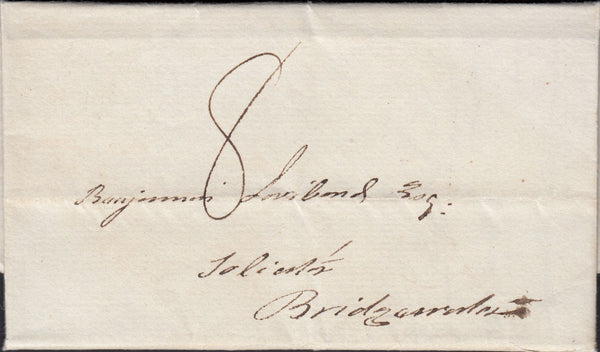 8
Benjamin Lovibond Esq.
Solicitor
Bridgewater